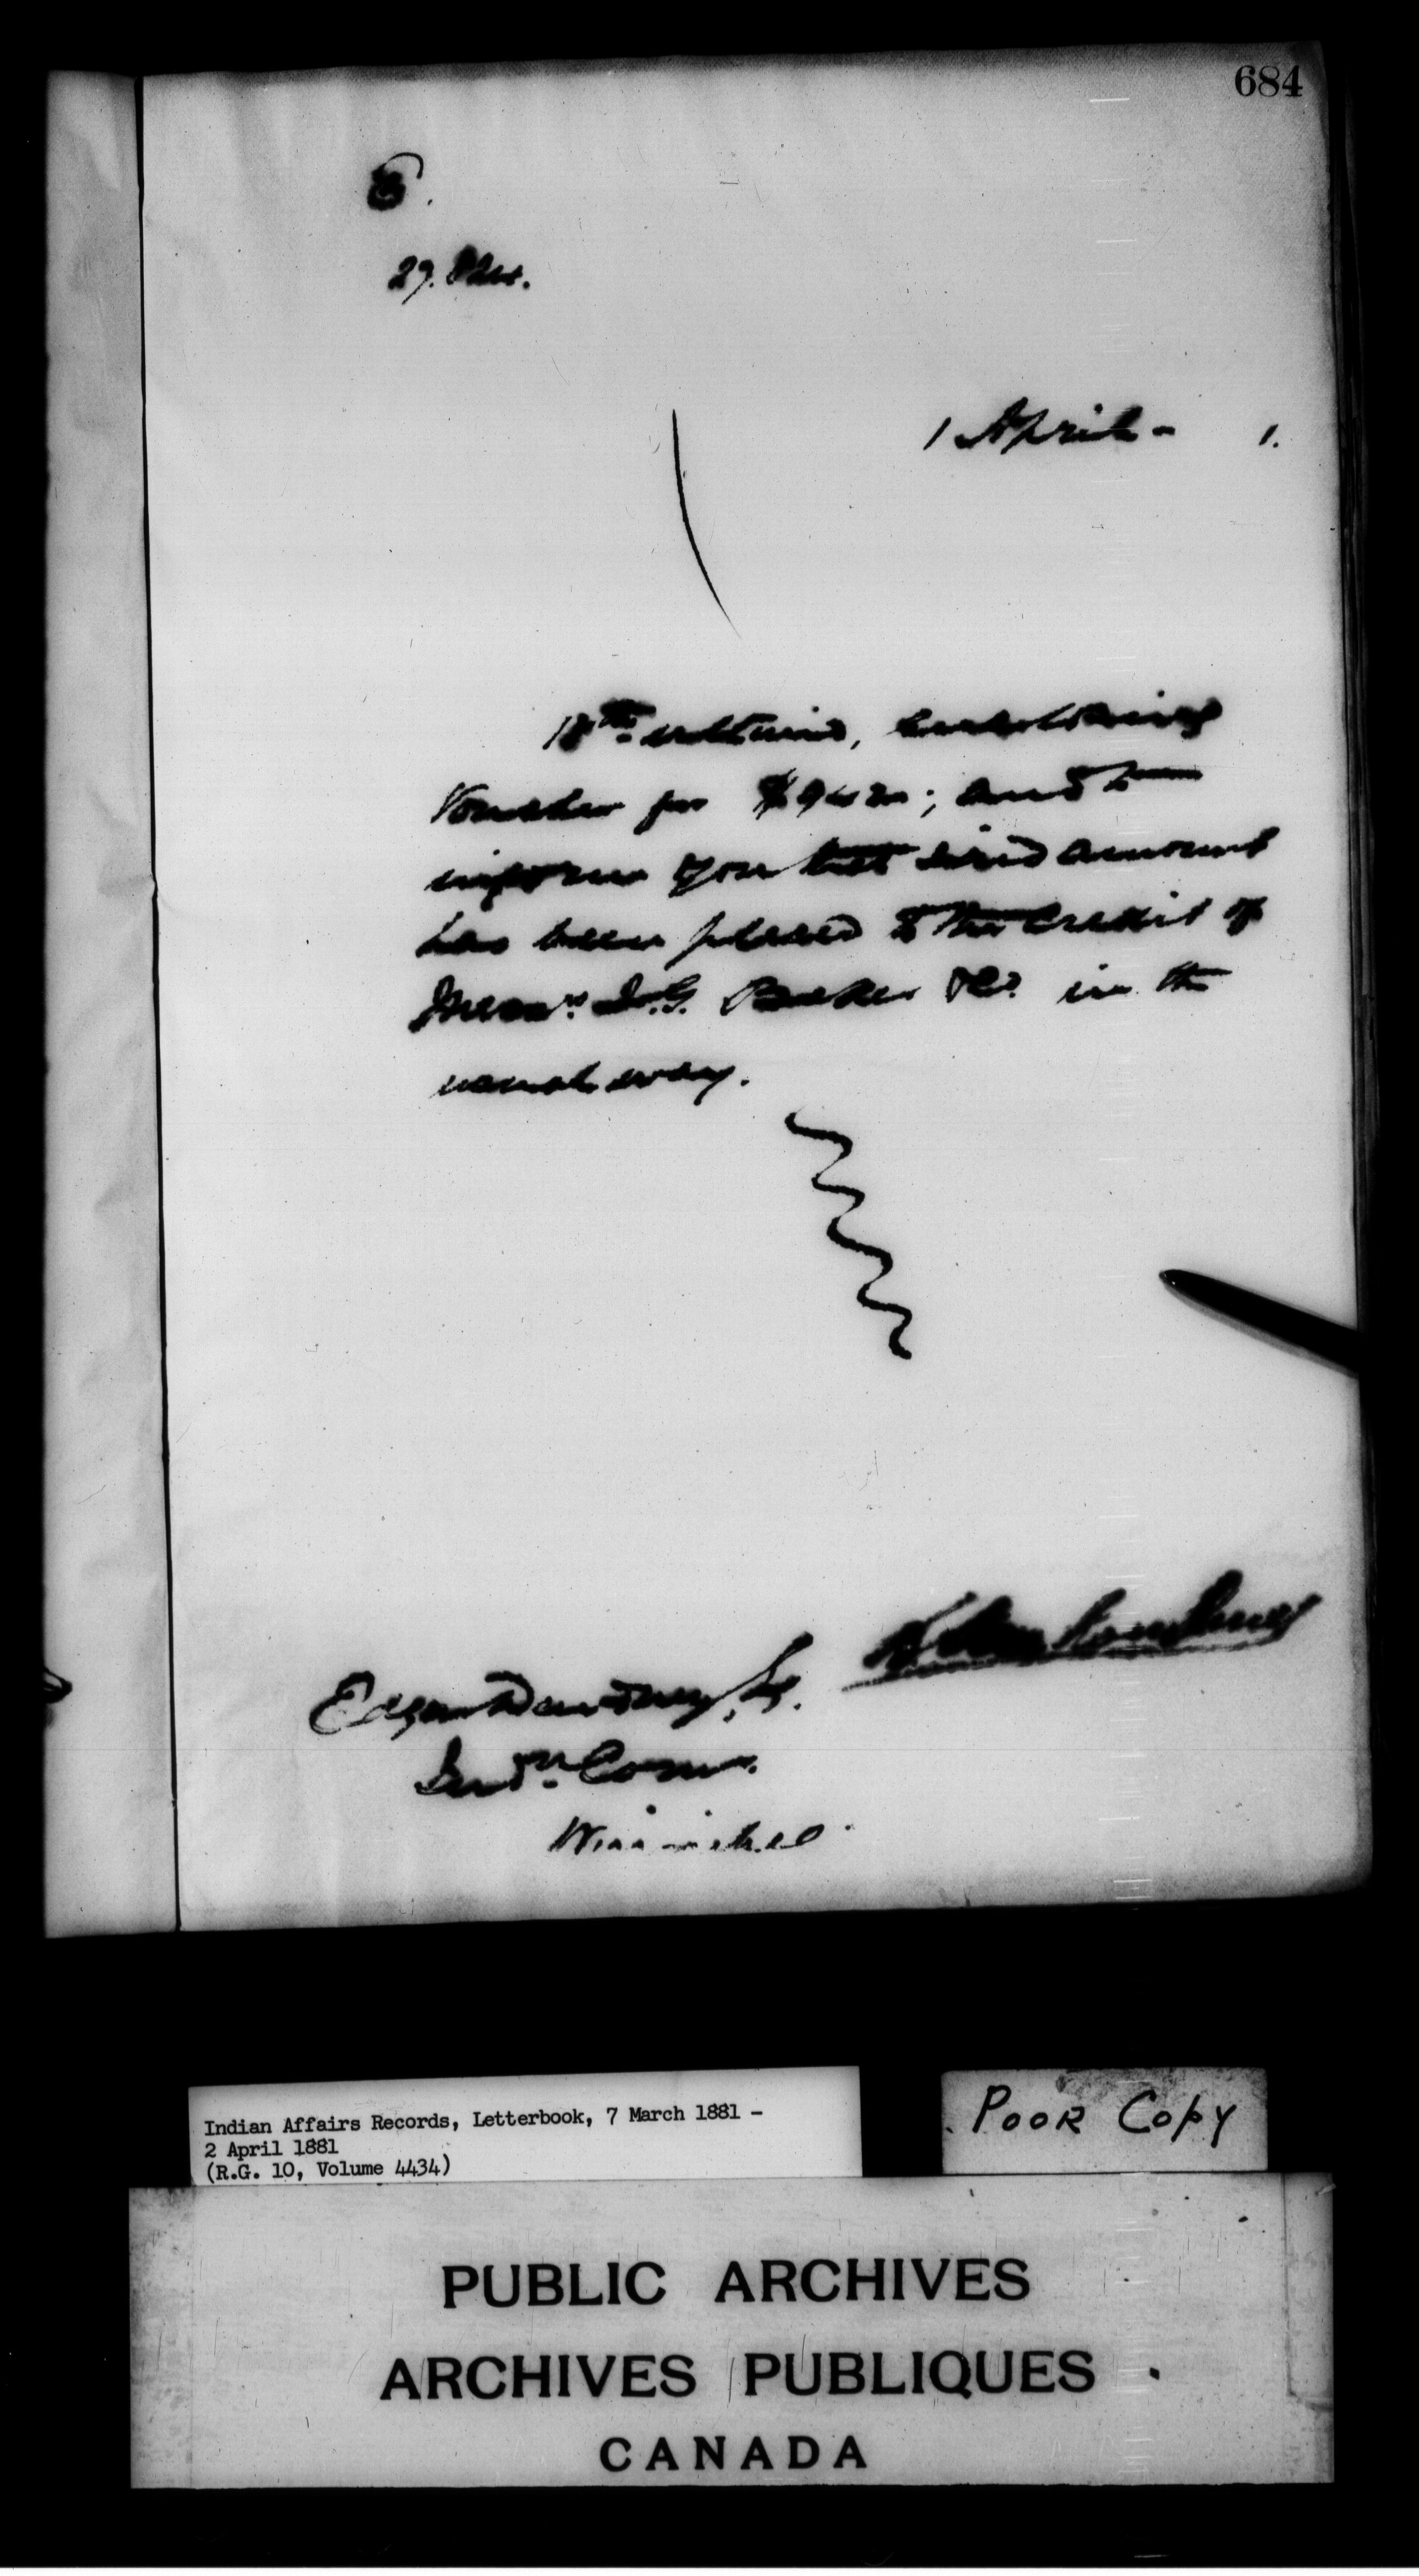 684
1 April - 1.
18th ultimo, enclosing
Voucher for $942; and to
inform you that said amount
has been placed to the Credit of
Messrs. I.G. Baker & Co. in the
usual way.
Edgar Dewdney, Esq.
Indn. Comr.
Winnipeg
Indian Affairs Records, Letterbook, 7 March 1881 -
2 April 1881
(R.G. 10, Volume 4434)
Poor Copy
PUBLIC ARCHIVES
ARCHIVES PUBLIQUES
CANADA